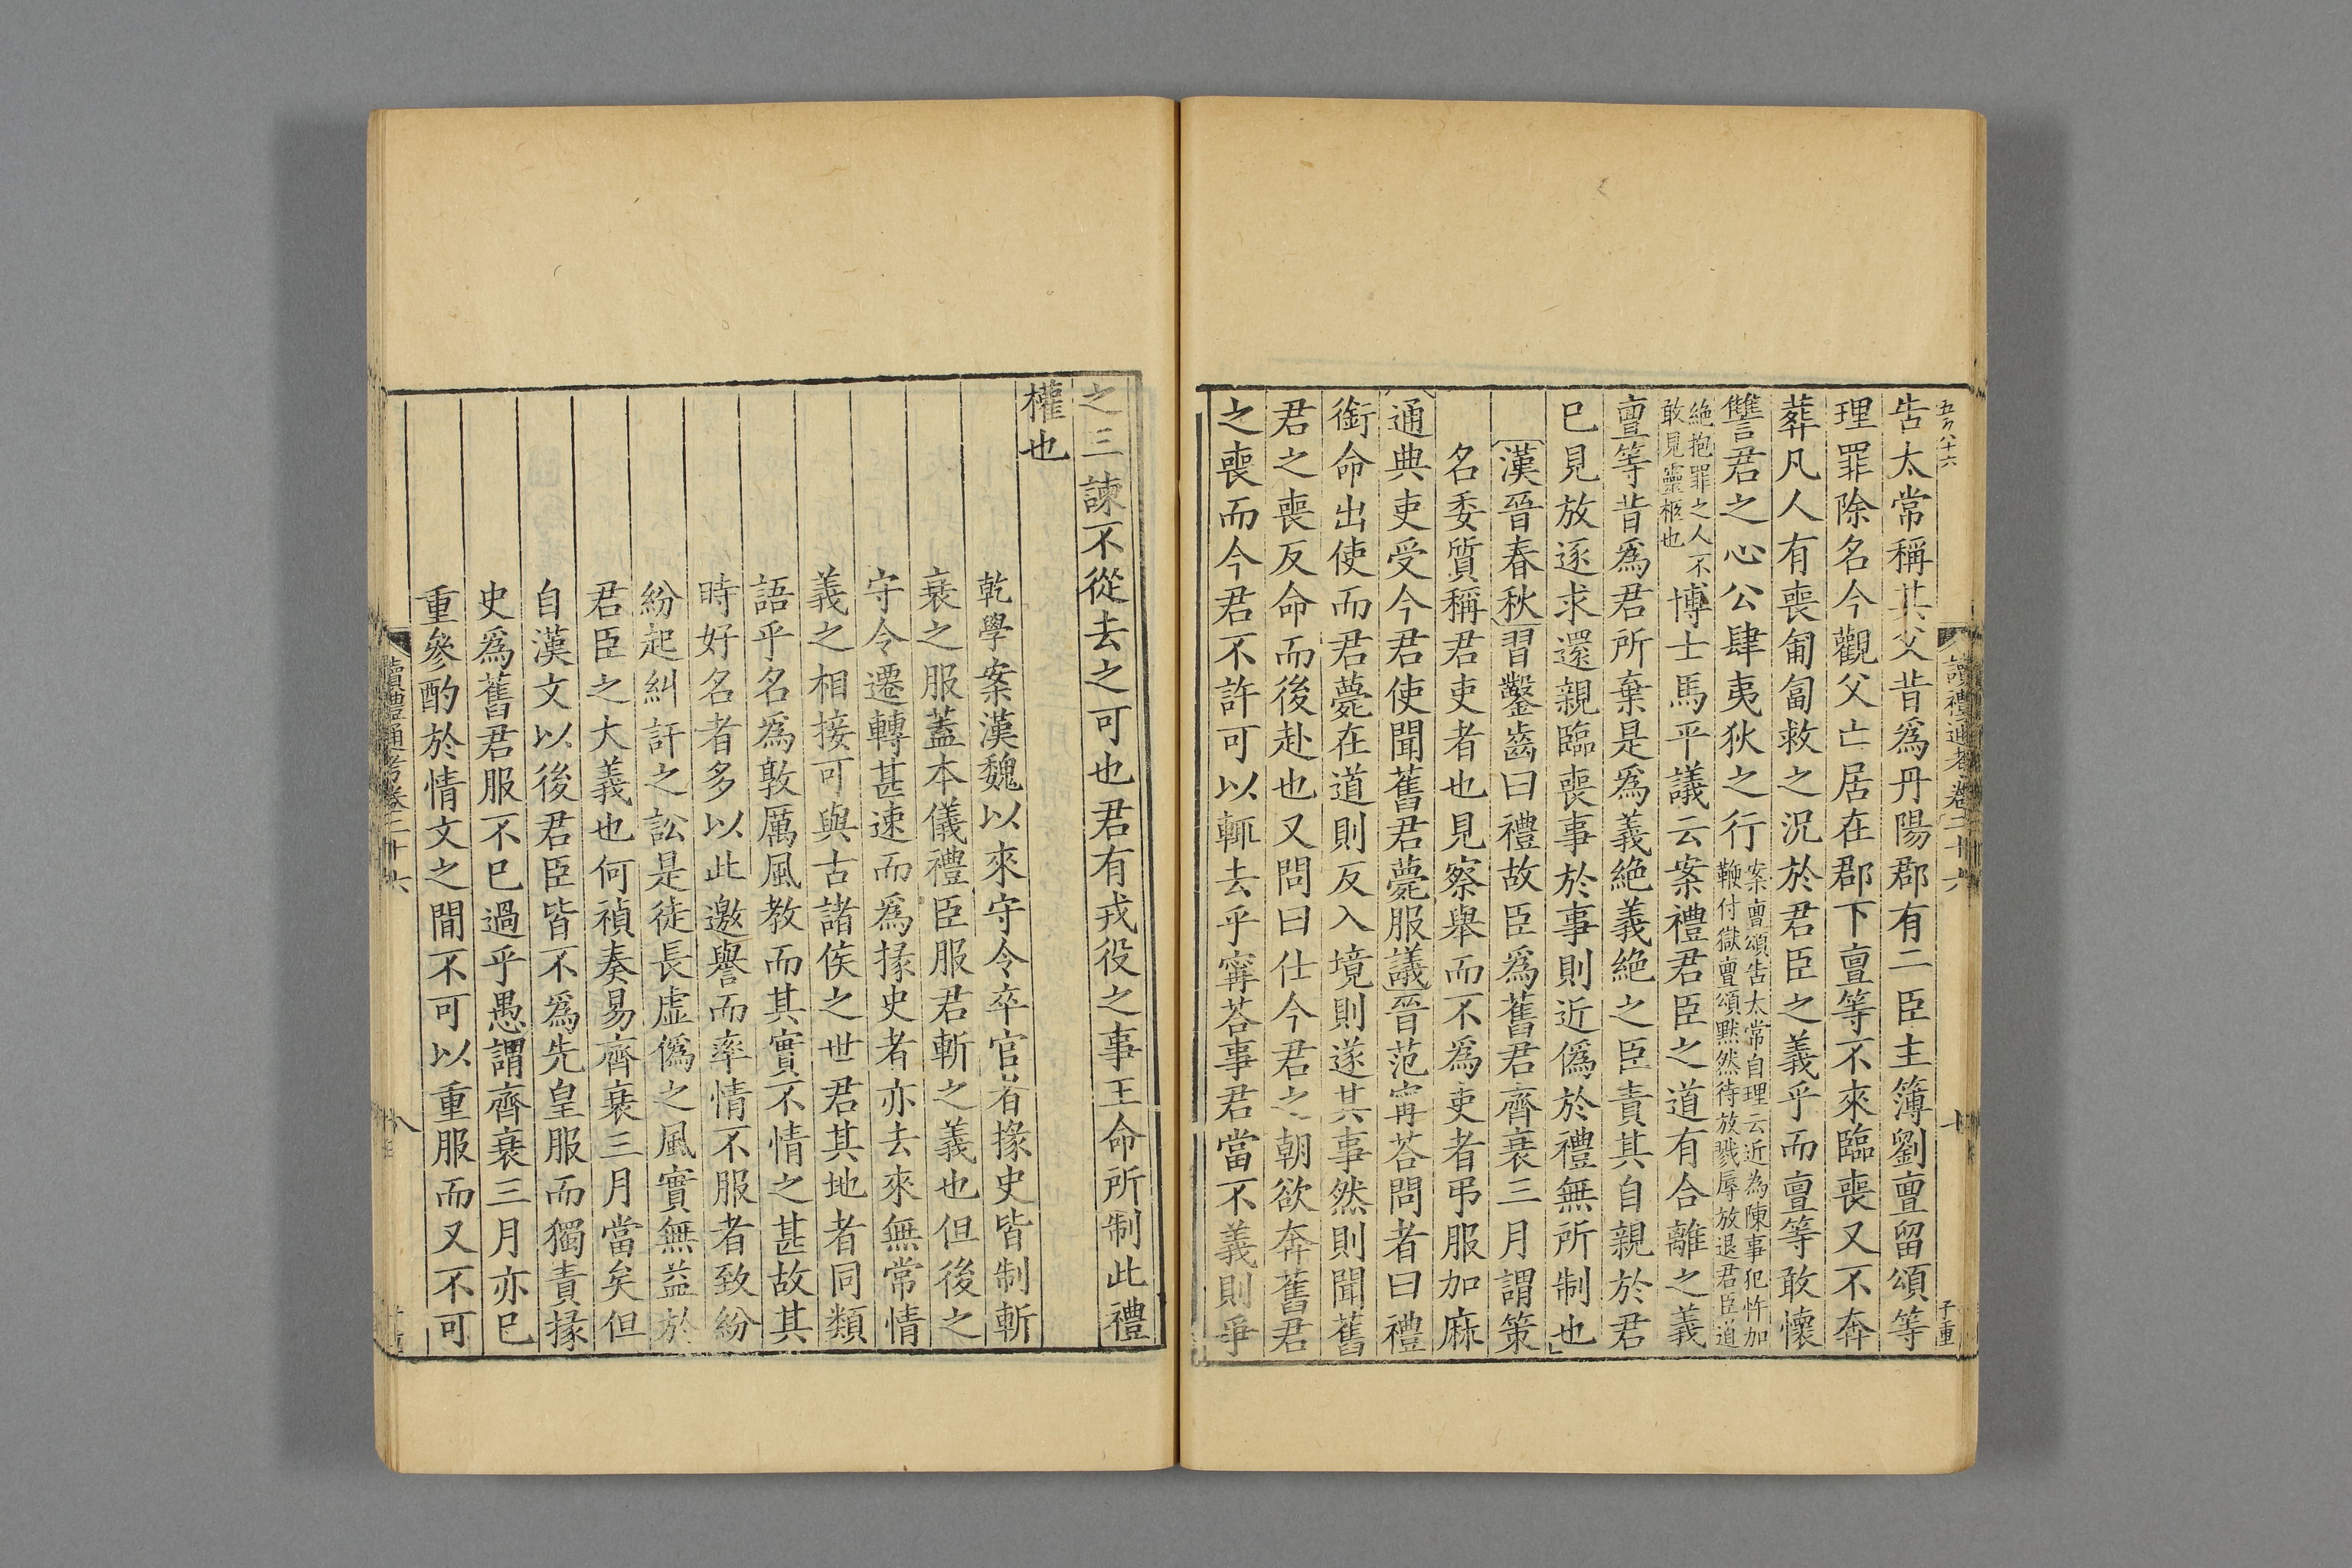 五百八十六
讀禮通考卷二十六
子重
告太常稱其父昔爲丹陽郡有二臣主簿劉亶留頌等
理罪除名今觀父亡居在郡下亶等不來臨喪又不奔
葬凡人有喪匍匐救之况於君臣之義乎而亶等敢懷
讐君之心公肆夷狄之行案亶頌告太常自理云近為陳事犯忤加
鞭付獄亶頌默然待放戮辱放退君臣道
絶抱罪之人不
敢見靈柩也博士馬平議云案禮君臣之道有合離之義
亶等昔爲君所棄是爲義絶義絶之臣責其自親於君
已見放逐求還親臨喪事於事則近僞於禮無所制也
漢晉春秋習鑿齒曰禮故臣爲舊君齊衰三月謂策
名委質稱君吏者也見察舉而不爲吏者弔服加麻
通典吏受今君使聞舊君薨服議晉范甯荅問者曰禮
銜命出使而君薨在道則反入境則遂其事然則聞舊
君之喪反命而後赴也又問曰仕今君之朝欲奔舊君
之喪而今君不許可以輒去乎甯荅事君當不義則爭
之三諫不從去之可也君有戎役之事王命所制此禮
權也
乾學案漢魏以來守令卒官者掾史皆制斬
衰之服蓋本儀禮臣服君斬之義也但後之
守令遷轉甚速而爲掾史者亦去來無常情
義之相接可與古諸侯之世君其地者同類
語乎名爲敦厲風教而其實不情之甚故其
時好名者多以此邀譽而率情不服者致紛
紛起糾訐之訟是徒長虛僞之風實無益於
君臣之大義也何禎奏易齊衰三月當矣但
自漢文以後君臣皆不爲先皇服而獨責掾
史爲舊君服不已過乎愚謂齊衰三月亦已
重參酌於情文之閒不可以重服而又不可
讀禮通考卷二十六